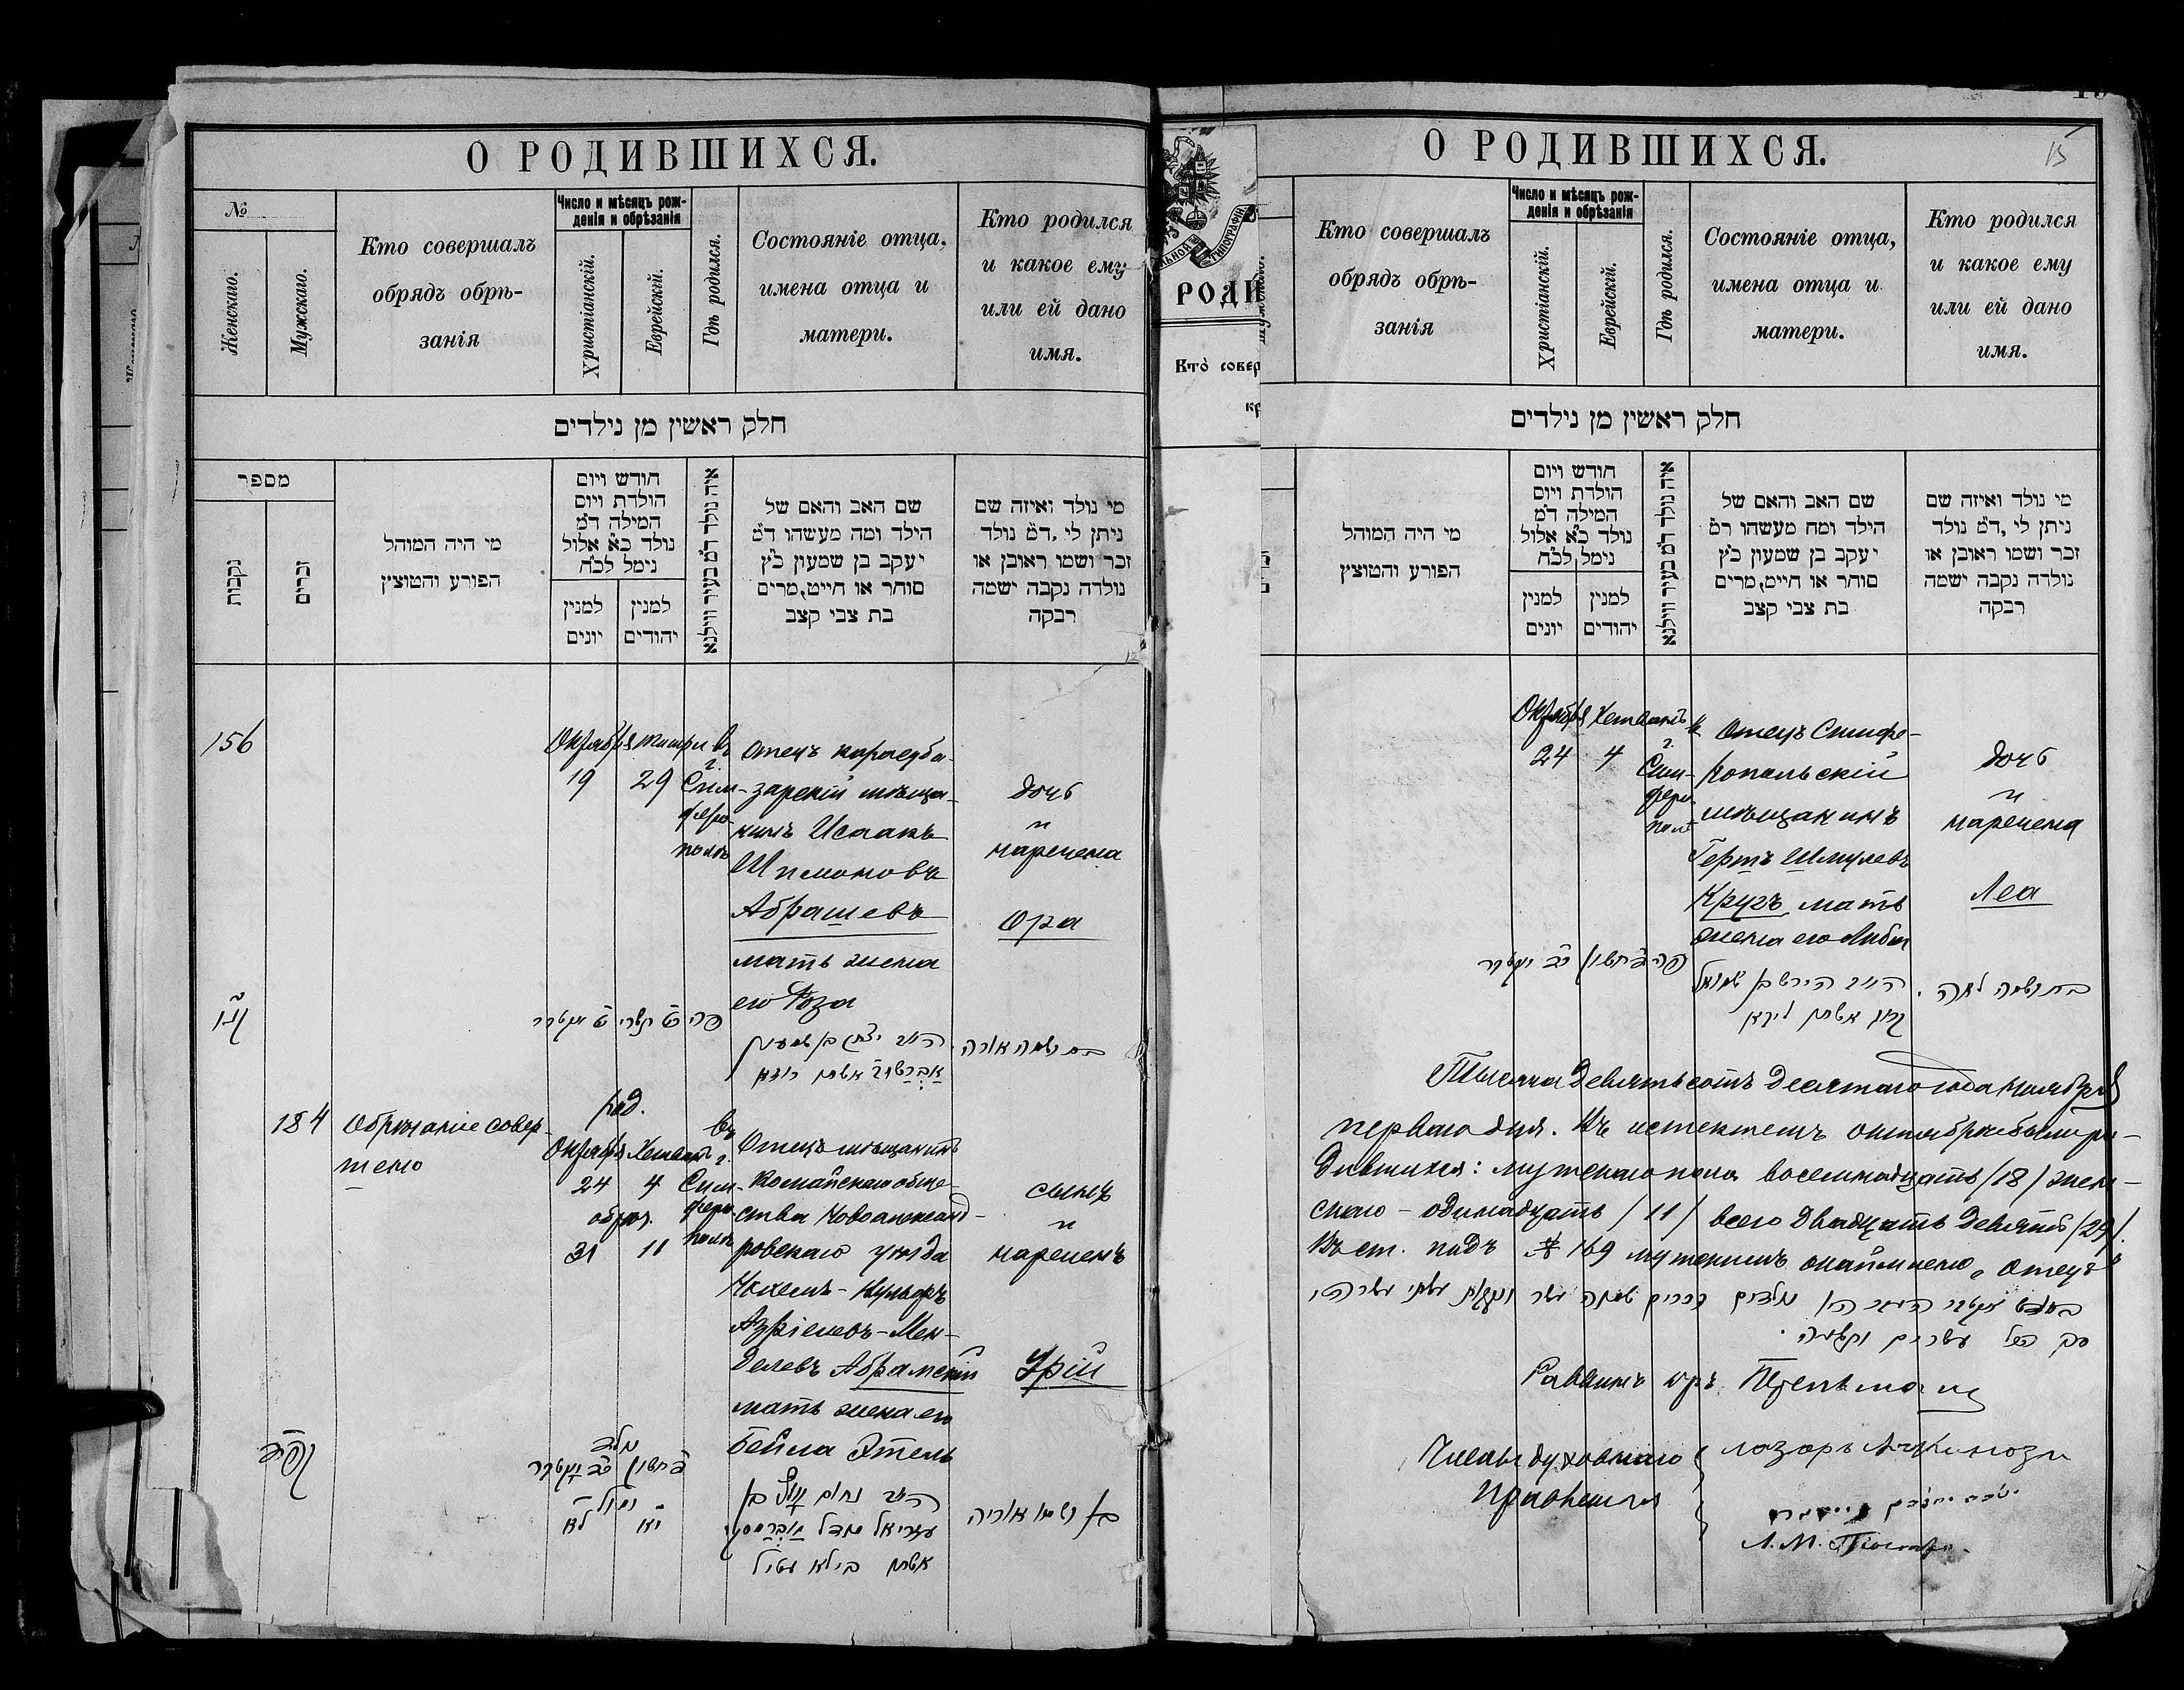 О РОДИВШИХСЯ.
№
Женскаго.
Мужскаго.
Кто совершалъ
обрядъ обрѣ-
занія
Число и мѣсяцъ рож-
денія и обрѣзанія
Христіанскій.
Еврейскій.
Гдѣ родился.
Состояніе отца,
имена отца и
матери.
Кто родился
и какое ему
или ей дано
имя.
חלק ראשין מן נילדים
מספר
נקבות
זכרים
מי היה המוהל
הפורע והטוצץ
חודש ויום
הולדת ויום
המילה ד״מ
נולד כ״א אלול
נימל לכ״ח
למנין
יונים
למנין
יהודים
איה נולד ד״מ בעיר ווילנא
שם האב והאם של
הילד ומה מעשהו ד״מ
יעקב בן שמעון כ״ץ
סוחר או חייט, מרים
בת צבי קצב
מי נולד ואיזה שם
ניתן לי, ד״מ נולד
זכר ושמו ראובן או
נולדה נקבה ישמה
רבקה
156
Октября
19
Тишри
29
въ
г.
Сим-
феро-
полѣ
Отецъ карасуба-
зарскій мѣща-
нинъ Исаакъ
Шимоновъ
Абрашевъ
мать жена
его Роза
дочь
и
наречена
Ора
קנ״ו
פה
יצחק בן שמעון
אשתו רוזא
בת ושמה אורה
184
Обрѣзаніе совер-
шено
род.
Октября
24
Хешванъ
4
обрѣз.
31
11
въ
г.
Сим-
феро-
полѣ
Отецъ мѣщанинъ
Комайскаго обще-
ства Новоалександ-
ровскаго уѣзда
Нохемъ-Вульфъ
Азріелевъ-Мен-
делевъ Абрамскій
мать жена его
Бейла Этель
сынъ
и
нареченъ
Урій
קפ״ד
נולד
נימול
יא
לא
נחום וואלף בן
עזריאל מנדל
אשתו ביילא עטיל
בן ושמו אוריה
РОДИ
Кто совер
О РОДИВШИХСЯ.
15
Кто совершалъ
обрядъ обрѣ-
занія
Число и мѣсяцъ рож-
денія и обрѣзанія
Христіанскій.
Еврейскій.
Гдѣ родился.
Состояніе отца,
имена отца и
матери.
Кто родился
и какое ему
или ей дано
имя.
חלק ראשין מן נילדים
מי היה המוהל
הפורע והטוצץ
חודש ויום
הולדת ויום
המילה ד״מ
נולד כ״א אלול
נימל לכ״ח
למנין
יונים
למנין
יהודים
איה נולד ד״מ בעיר ווילנא
שם האב והאם של
הילד ומה מעשהו ד״מ
יעקב בן שמעון כ״ץ
סוחר או חייט, מרים
בת צבי קצב
מי נולד ואיזה שם
ניתן לי, ד״מ נולד
זכר ושמו ראובן או
נולדה נקבה ישמה
רבקה
Октября
24
Хешванъ
4
въ
г.
Сим-
феро-
полѣ
Отецъ Симфе-
ропольскій
мѣщанинъ
Гершъ Шмулевъ
Кругъ, мать
жена его Либа
дочь
и
наречена
Леа
פה
הירש בן שמואל
קרוג אשתו ליבא
בת ושמה לאה.
Тысяча девятьсотъ десятаго года ноября
перваго дня. Въ истекшемъ октябрѣ было ро-
дившихся: мужскаго пола восемнадцать /18/ жен-
скаго - одинадцать /11/ всего двадцать девять /29/.
Въ ст. подъ № 169 мужскимъ „Отецъ“
זכרים שמונה עשר
סך הכל עשרים ותשעה.
Раввинъ
Члены духовнаго
правленія
Лазарь Ашкинози
Л. М.